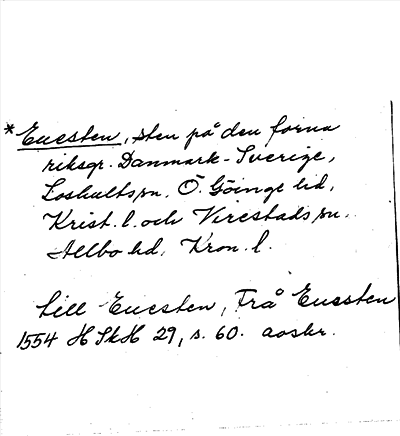 *Enesten, sten på den forna
riksgr. Danmark-Sverige,
Loshults sn. Ö. Göinge hd,
Krist. l. och Virestads sn.
Allbo hd, Kron. l.
till Enesten, Frå Enesten
1554 HSkH 29, s. 60. avskr.